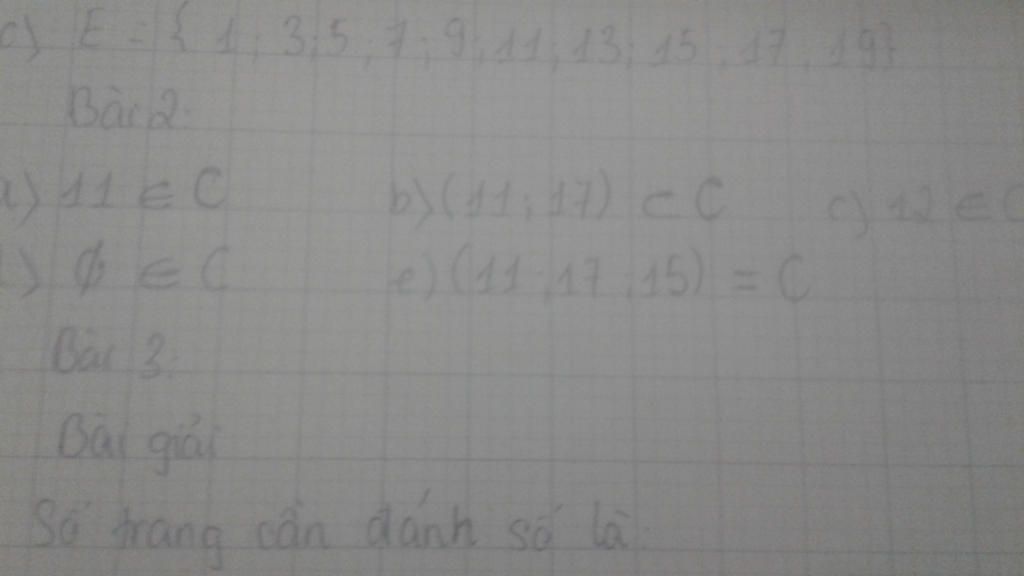 c) E = { 1 ; 3 ; 5 ; 7 ; 9 ; 11 ; 13 ; 15 ; 17 ; 19}
Bài 2:
a) 11 ∈ C b) (11 ; 17) ⊂ C c) 12 ∈ C
) ∅ ∈ C e) (11 ; 17 ; 15) = C
Bài 3:
Bài giải
Số trang cần đánh số là: